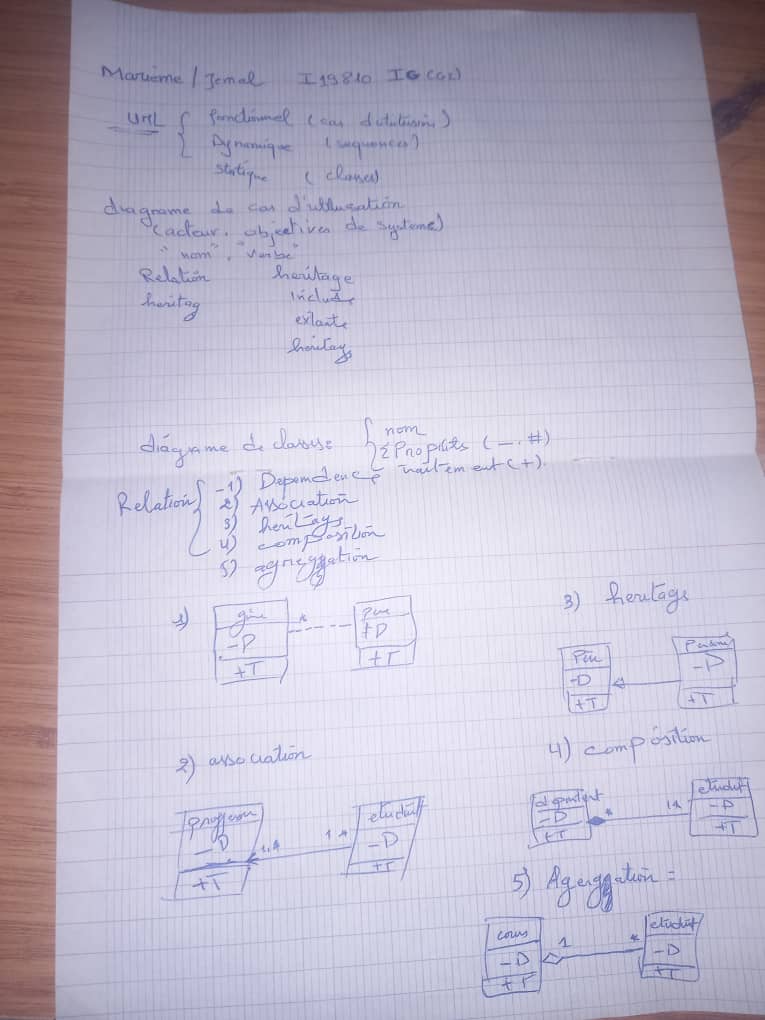 Marieme / Jemal I19810 IG (G2)
UML { fonctionnel (cas d'utulisation)
Dynamique (sequences)
Statique (classes)
diagrame de cas d'utilusation
(acteur, objectives de systeme)
"nom", "Verbe"
Relation heritage
heritag include
extante
heritags
diagrame de classse { nom
Propiites (-, #)
traitement (+)
Relation { -1) Dependence
2) Association
3) heritags
4) composition
5) agreggation
1)
-D
+T
*
+D
+T
3) heritags
Peu
-D
+T
-D
+T
2) association
-D
+T
1.*
1.*
etudiut
-D
+T
4) composition
-D
+T
*
etudiut
-D
+T
5) Agerggation =
cours
-D
+T
1
*
etudiut
-D
+T